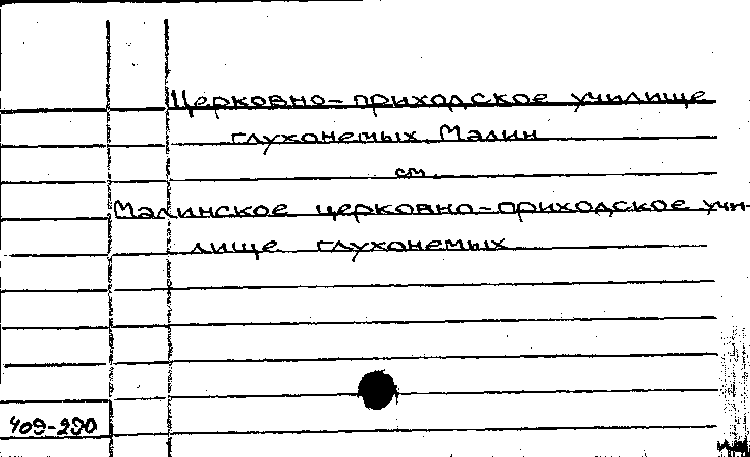 Церковно-приходское училище
глухонемых. Малин
см.
Малинское церковно-приходское учи-
лище глухонемых
409-290